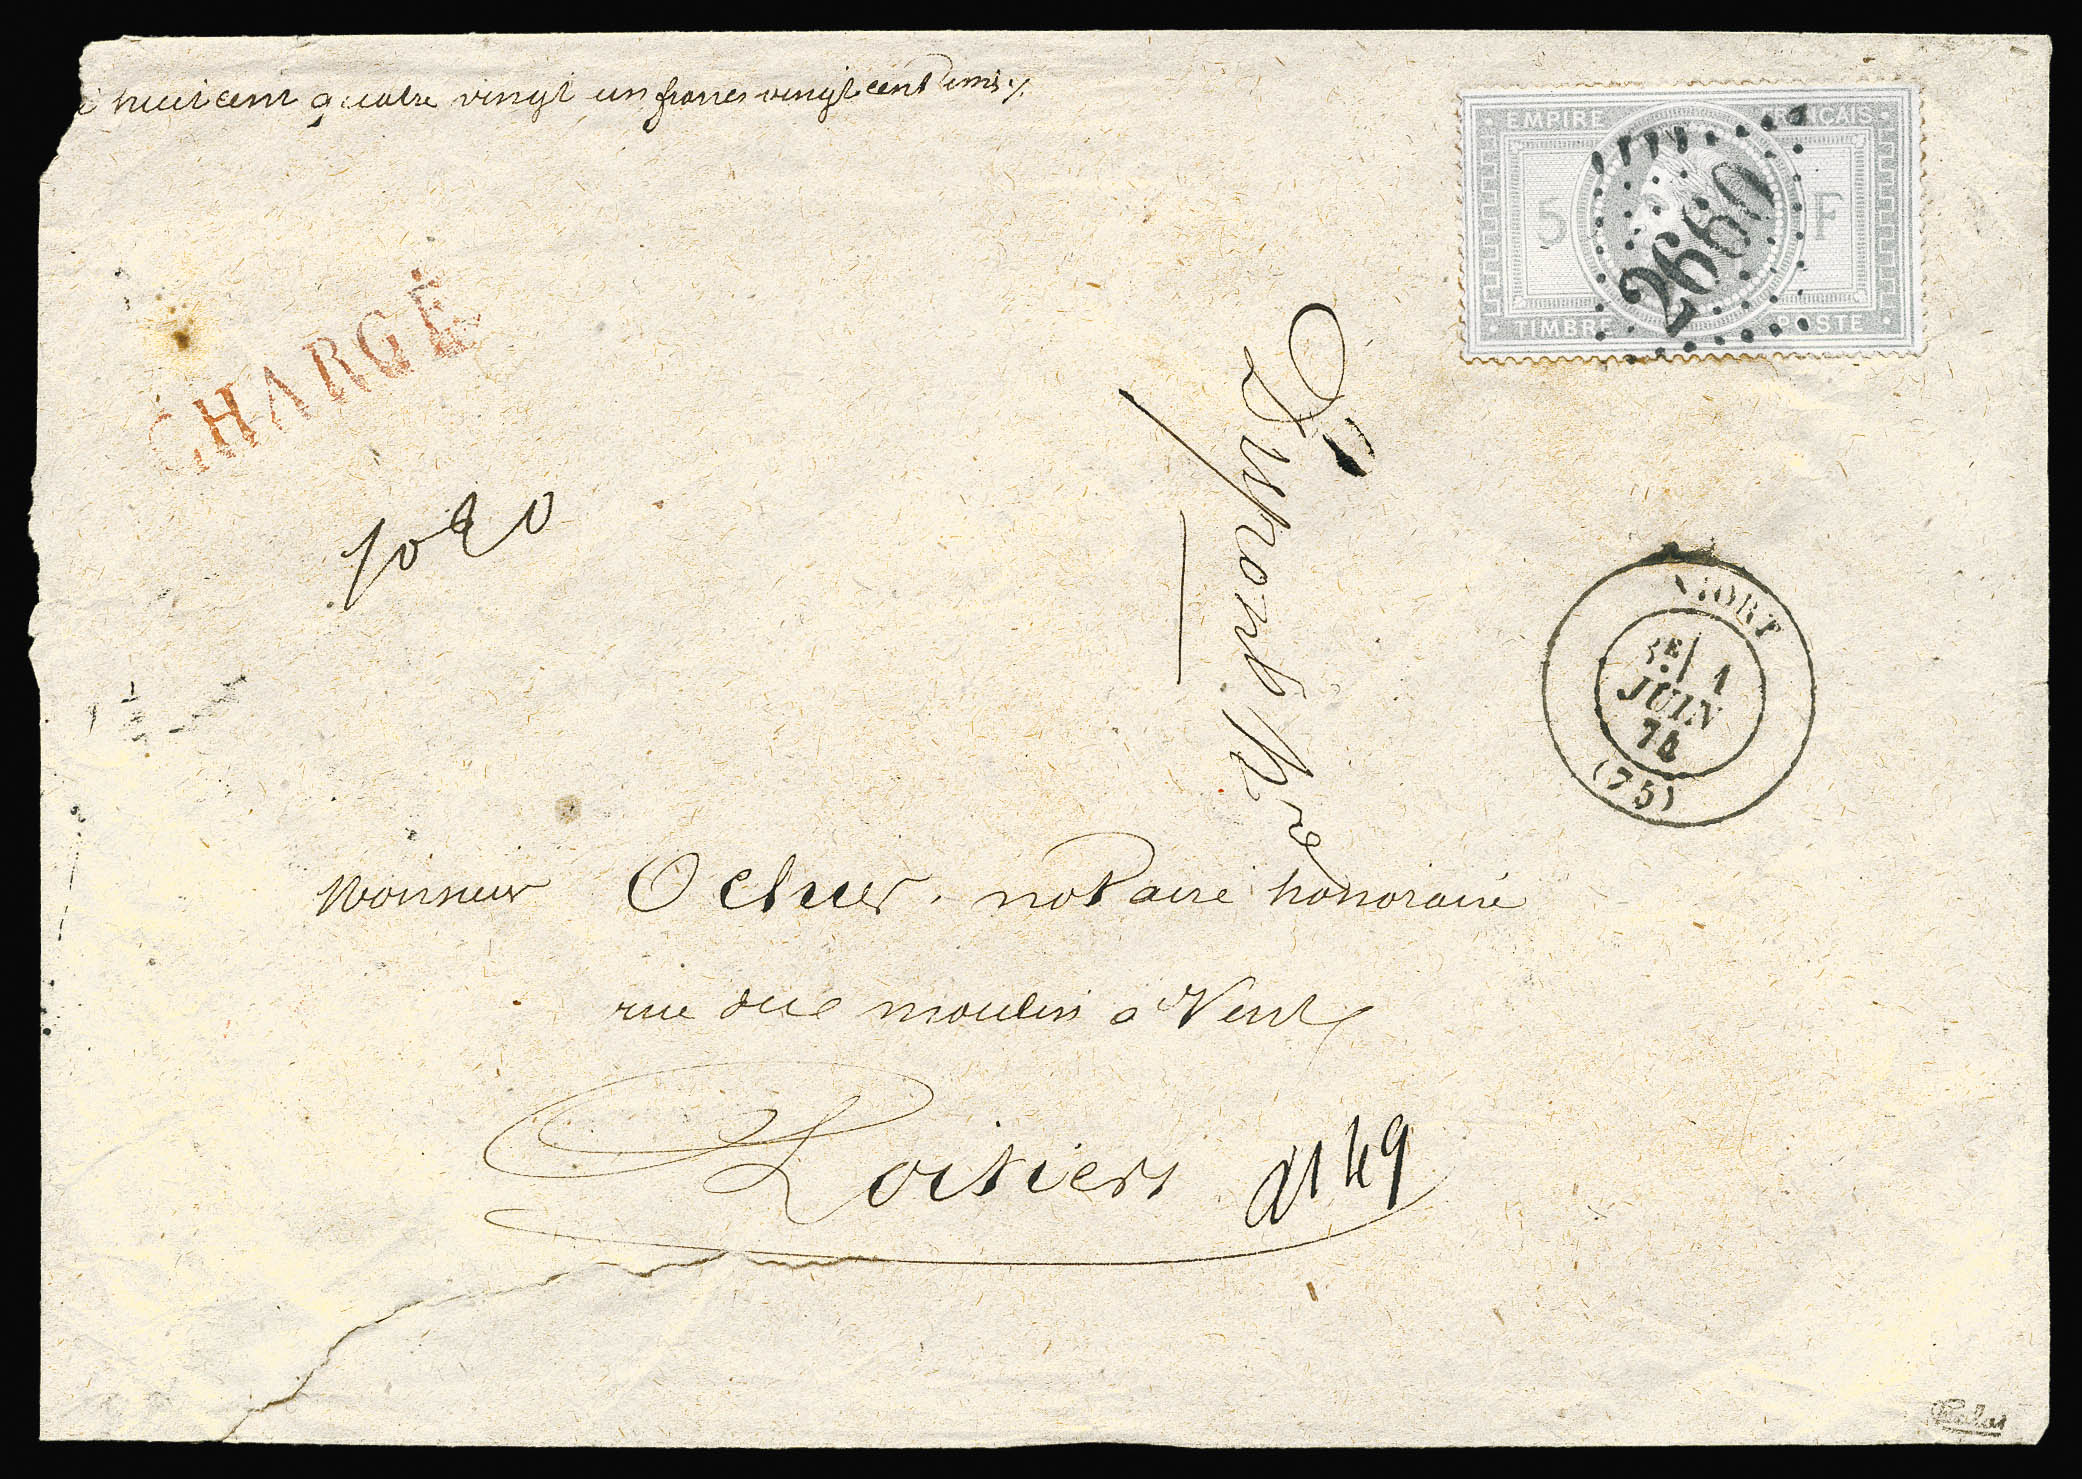 huit cent quatre vingt un francs vingt centimes
EMPIRE FRANCAIS
5 F
TIMBRE POSTE
2660
CHARGÉ
NIORT
5E 1
JUIN
74
(75)
Monsieur Ocher. notaire honoraire
rue du moulin à Vent
Poitiers 1149